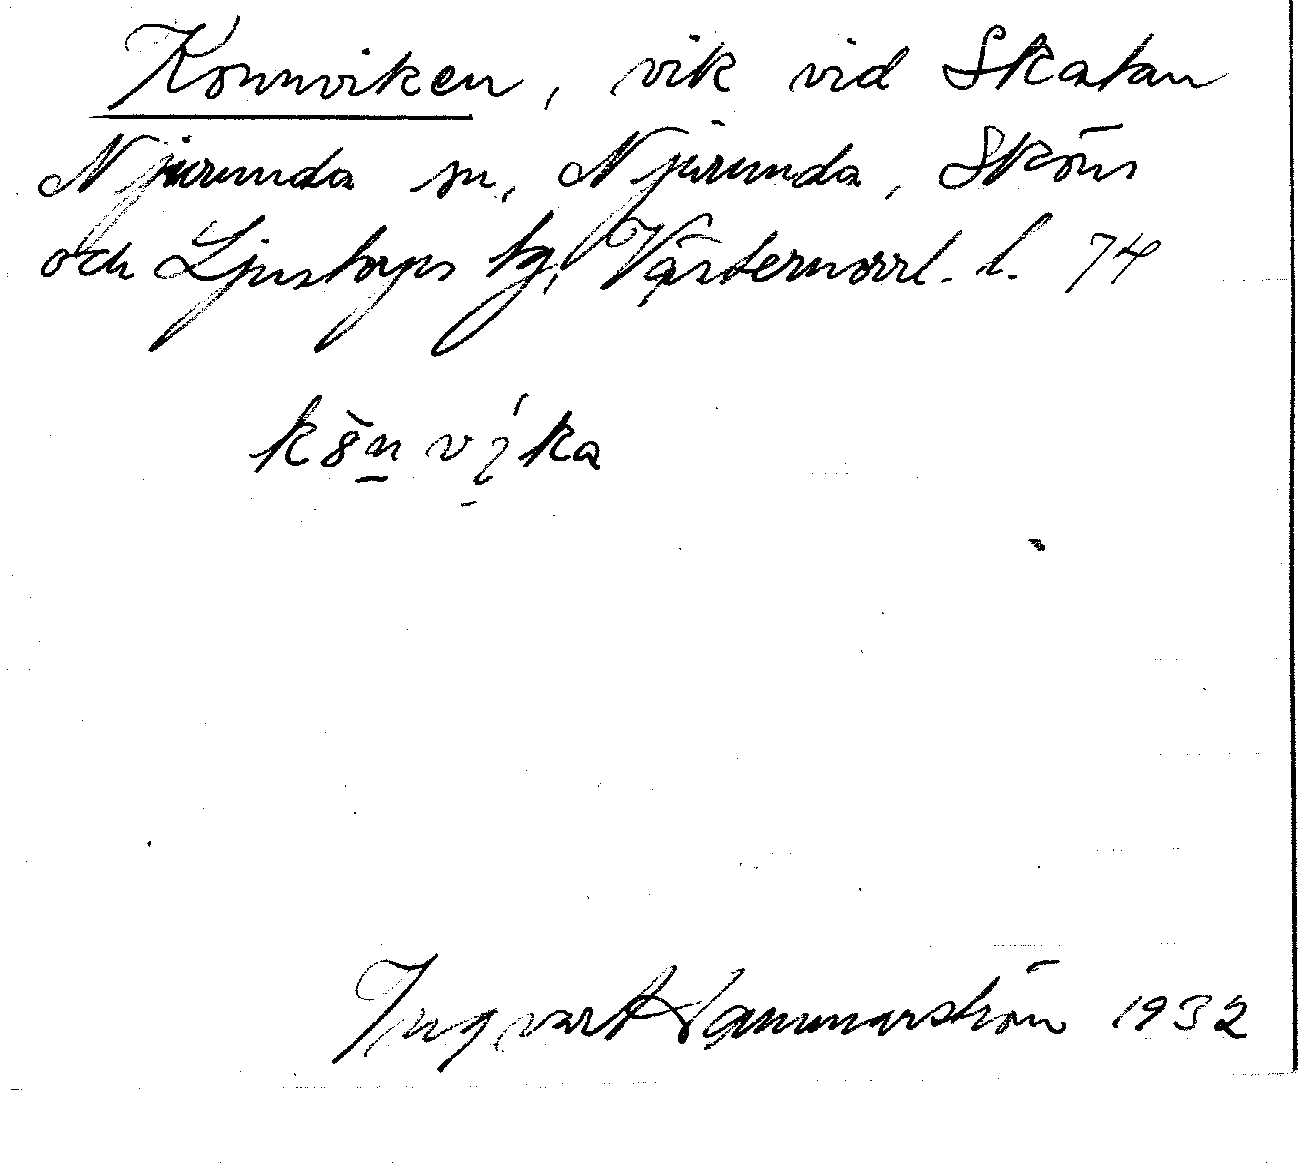 Konnviken, vik vid Skatan
Njurunda sn, Njurunda, Sköns
och Ljustorps tg, Västernorrl. l. 74
Ingvar Hammarström 1932